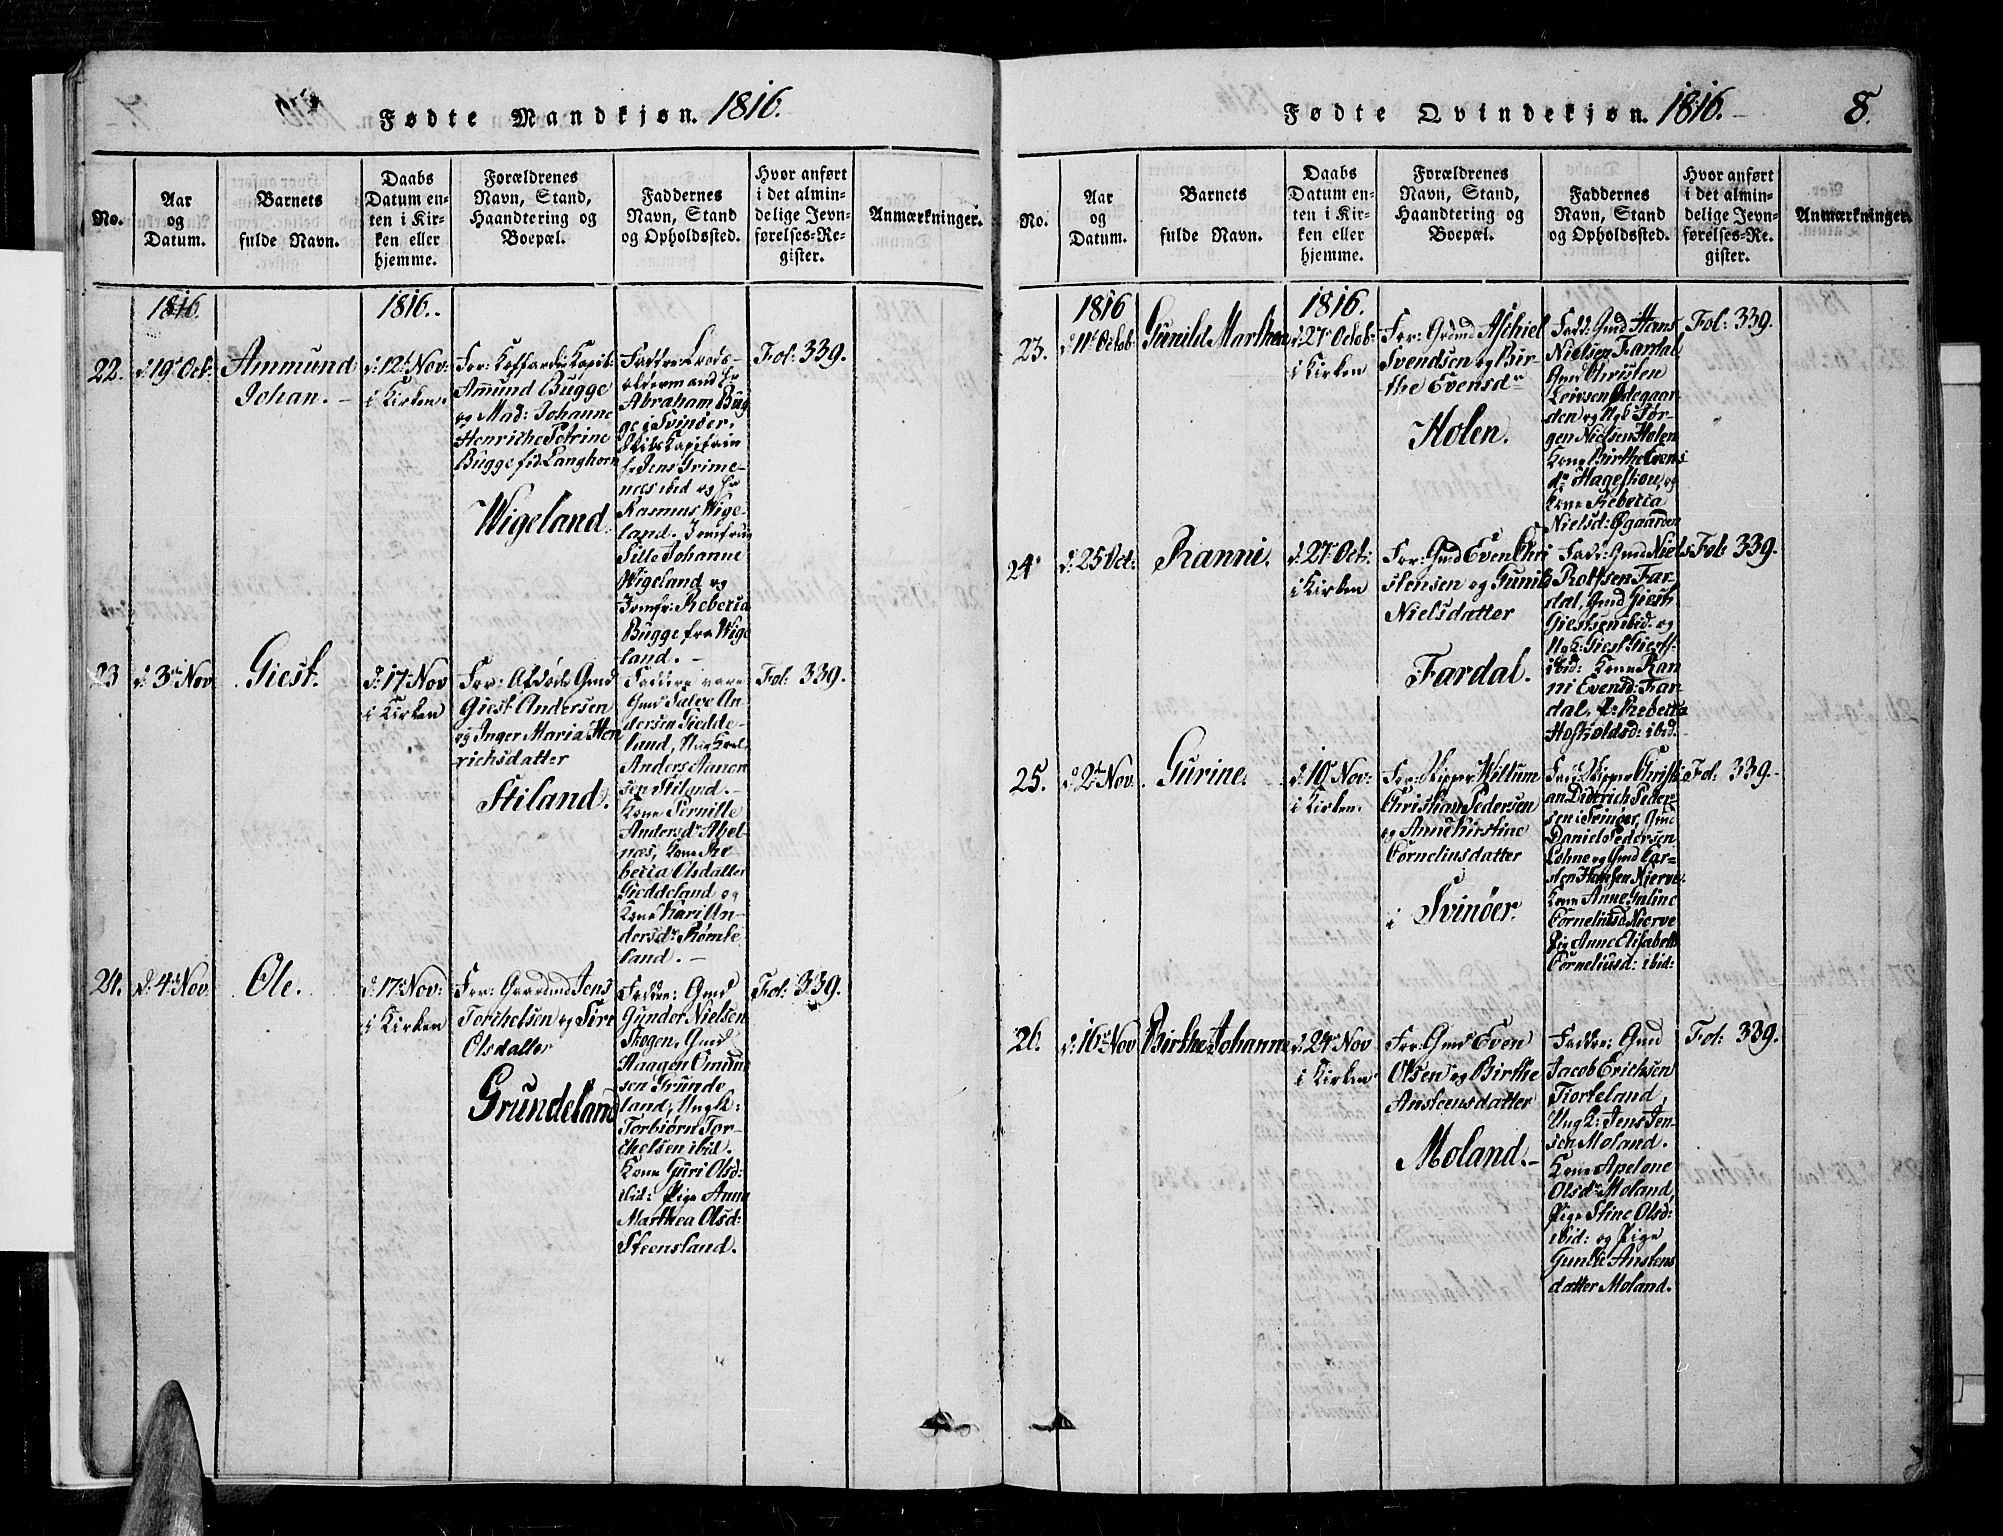 Fødte Mandkjøn. 1816.
No.
Aar
og
Datum.
Barnets
fulde Navn.
Daabs
Datum en-
ten i Kir-
ken eller
hjemme.
Forældrenes
Navn, Stand,
Haandtering og
Boepæl.
Faddernes
Navn, Stand
og Opholdssted.
Hvor anført
i det almin-
delige Jevn-
førelses-Re-
gister.
Anmærkninger.
1816.
1816.
22.
d. 19de Oct:
Ammund
Johan.
d: 12te Nov:
i Kirken.
For: Koffardi Capit:
Amund Bugge
og Mad: Johanne
Henriche Petrine
Bugge fød Langhorn
Wigeland.
Faddere: Lods-
oldermand Hr
Abraham Bug
ge i Svinöer,
Hr Jens Grime-
næs ibid og Hr
Rasmus Wige-
land. Jomfrue
Sille Johanne
Wigeland og
Jomfr: Rebecca
Bugge fra Wige
land.
Fol: 339.
23
d. 3die Nov
Giest.
d: 17 Nov
i Kirken
For: Afdøde Gmd
Giest Andersen
og Inger Maria Hen
richsdatter
Stiland.
Faddere vare
Gmd Salve An-
dersen Giedde-
land, Ungkarl
Anders Aanen
sen Stiland.
Kone Pernille
Andersdr Abel-
næs, Kone Re-
becca Olsdatter
Gieddeland og
Kone Kari An-
dersdr Rømte-
land.
Fol: 339.
24.
d. 4de Nov
Ole.
d: 17 Nov:
i Kirken
For: Gaardmd Jens
Torchelsen og Siri
Olsdatter
Grundeland
Faddre: Gmd
Gunder Nielsen
Skogen, Gmd
Haagen Omund
sen Grunde
land, Ungk:
Torbiørn Tor-
chelsen ibid.
Kone Guri Olsd:
ibid: Pige Anne
Marthea Olsd:
Steensland.
Fol: 339.
Fødte Qvindekjøn. 1816.
8.
No.
Aar
og
Datum.
Barnets
fulde Navn.
Daabs
Datum en-
ten i Kir-
ken eller
hjemme.
Forældrenes
Navn, Stand,
Haandtering og
Boepæl.
Faddernes
Navn, Stand
og Opholdssted.
Hvor anført
i det almin-
delige Jevn-
førelses-Re-
gister.
Anmærkninger.
1816
1816.
23.
d. 11te Octob
Gunild Marthea
d: 27de Octob:
i Kirken
For: Grmd Aschiel
Svendsen og Bir-
the Evensdr
Holen.
Fadd: Gmd Hans
Nielsen Fardal
Gmd Christen
Loivsen Ødegaar
den og Ngk Tør-
gen Nielsen Holen
Kone Birthe Evens
dr Hageskou, og
Kone Rebecca
Nielsd: Øgaarden
Fol: 339.
24.
d: 25 Oct:
Ranni.
d: 27de Oct:
i Kirken
For: Gmd Even Chri
stensen og Gunild
Nielsdatter
Fardal.
Fadd: Gmd Niels
Rolfsen Far-
dal, Gmd Giest
Giestsen ibid: og
Ngk: Giest Giests:
ibid: Kone Ran
ni Evensd: Far-
dal, P: Rebecca
Hoskoldsd: ibid.
Fol: 339.
25.
d. 2den Nov
Gurine.
d: 10de Nov:
i Kirken.
For: Skipper Willum
Christian Pedersen
og Anne Kirstine
Corneliusdatter
i Svinöer.
Fad: Skipper Christi-
an Diderich Peder-
sen i Svinöer, Gmd
Daniel Pedersen
Lohne og Gmd Car-
sten Hansen Nierve
Kone Anne Guline
Corneliusd Nierve
Pig Anne Elisabeth
Corneliusd: ibid:
Fol: 339.
26.
d: 16de Nov
Birthe Johanne
d: 24de Nov
i Kirken
For: Gmd Even
Olsen og Birthe
Anstensdatter
Moland.
Faddre: Gmd
Jacob Erichsen
Tiorteland,
Ungk: Jens Jen-
sen Moland.
Kone Apelone
Olsdr Moland,
Pige Stine Olsd:
ibid: og Pige
Gunild Anstens
datter Moland.
Fol: 339.